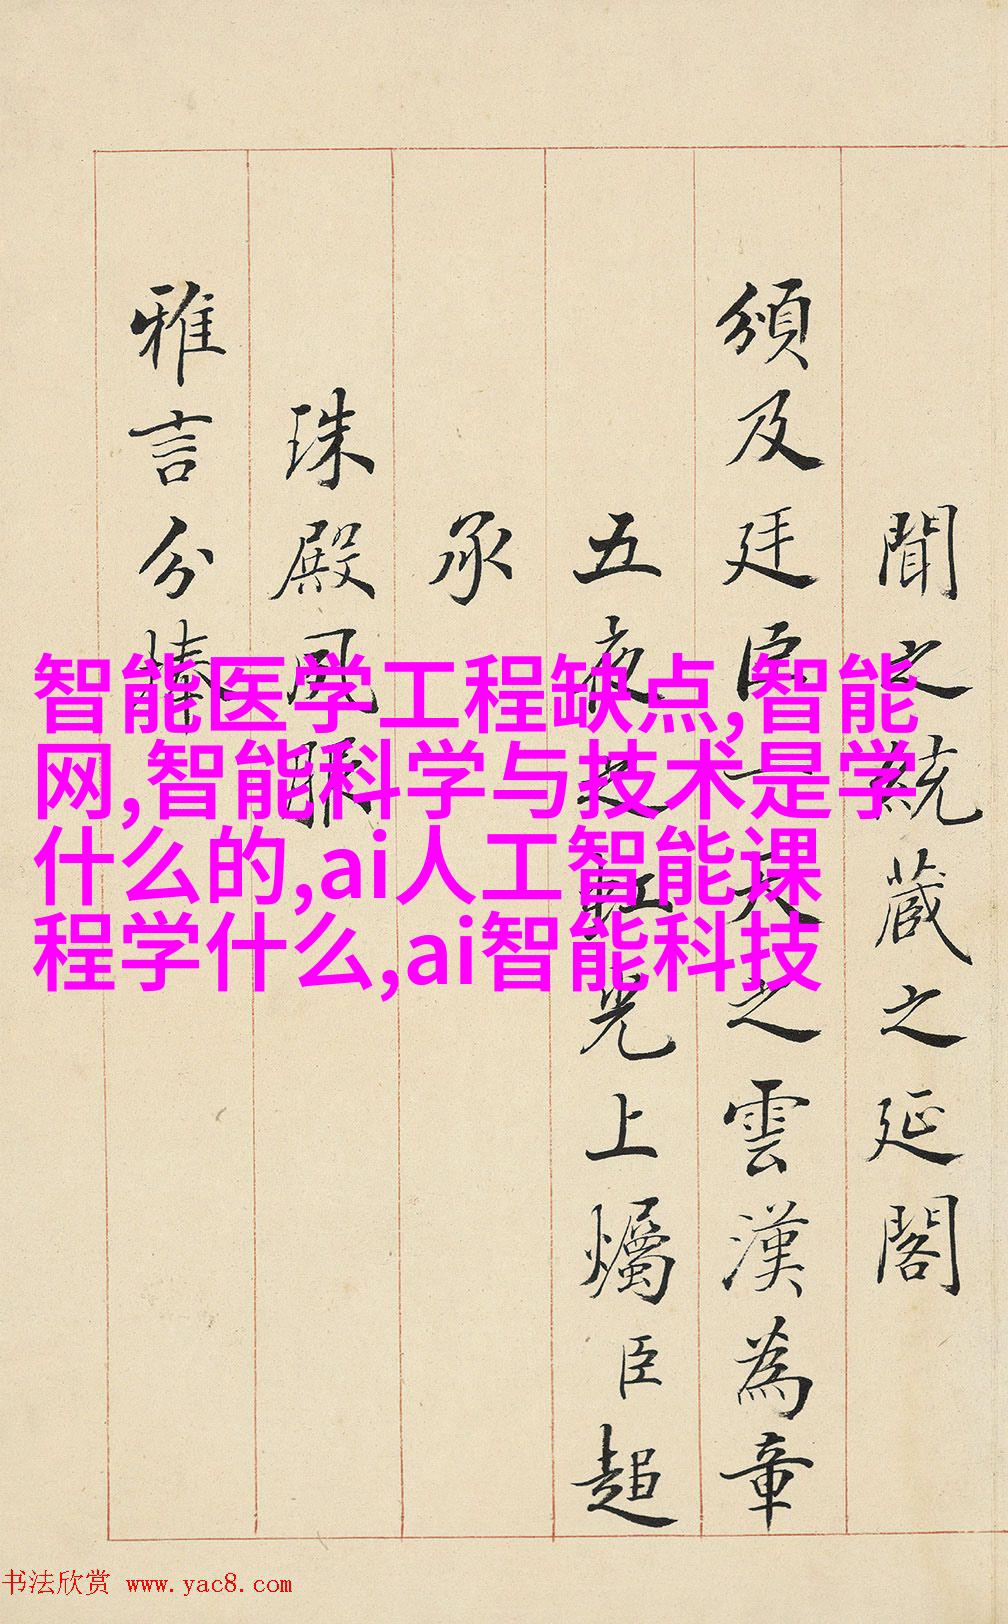 聞之統蔵之延閣
頒及廷臣一天之雲漢為章
五夜之虹光上爥臣超
承
珠殿風
雅言分捧
智能医学工程缺点,智能
网,智能科学与技术是学
什么的,ai人工智能课
程学什么,ai智能科技
书法欣赏 www.yac8.com